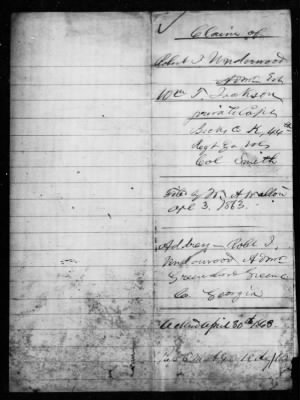 Claim of
Robert J. Underwood
Admr Est
Wm T. Jackson
private Capt
Co K, 44th
Regt Ga Vols
Col Smith
Filed by W. A. Walton
Apl 3. 1863.
Address - Robt J.
Underwood Admr
Greensboro Greene
Co Georgia
April 30th 1863